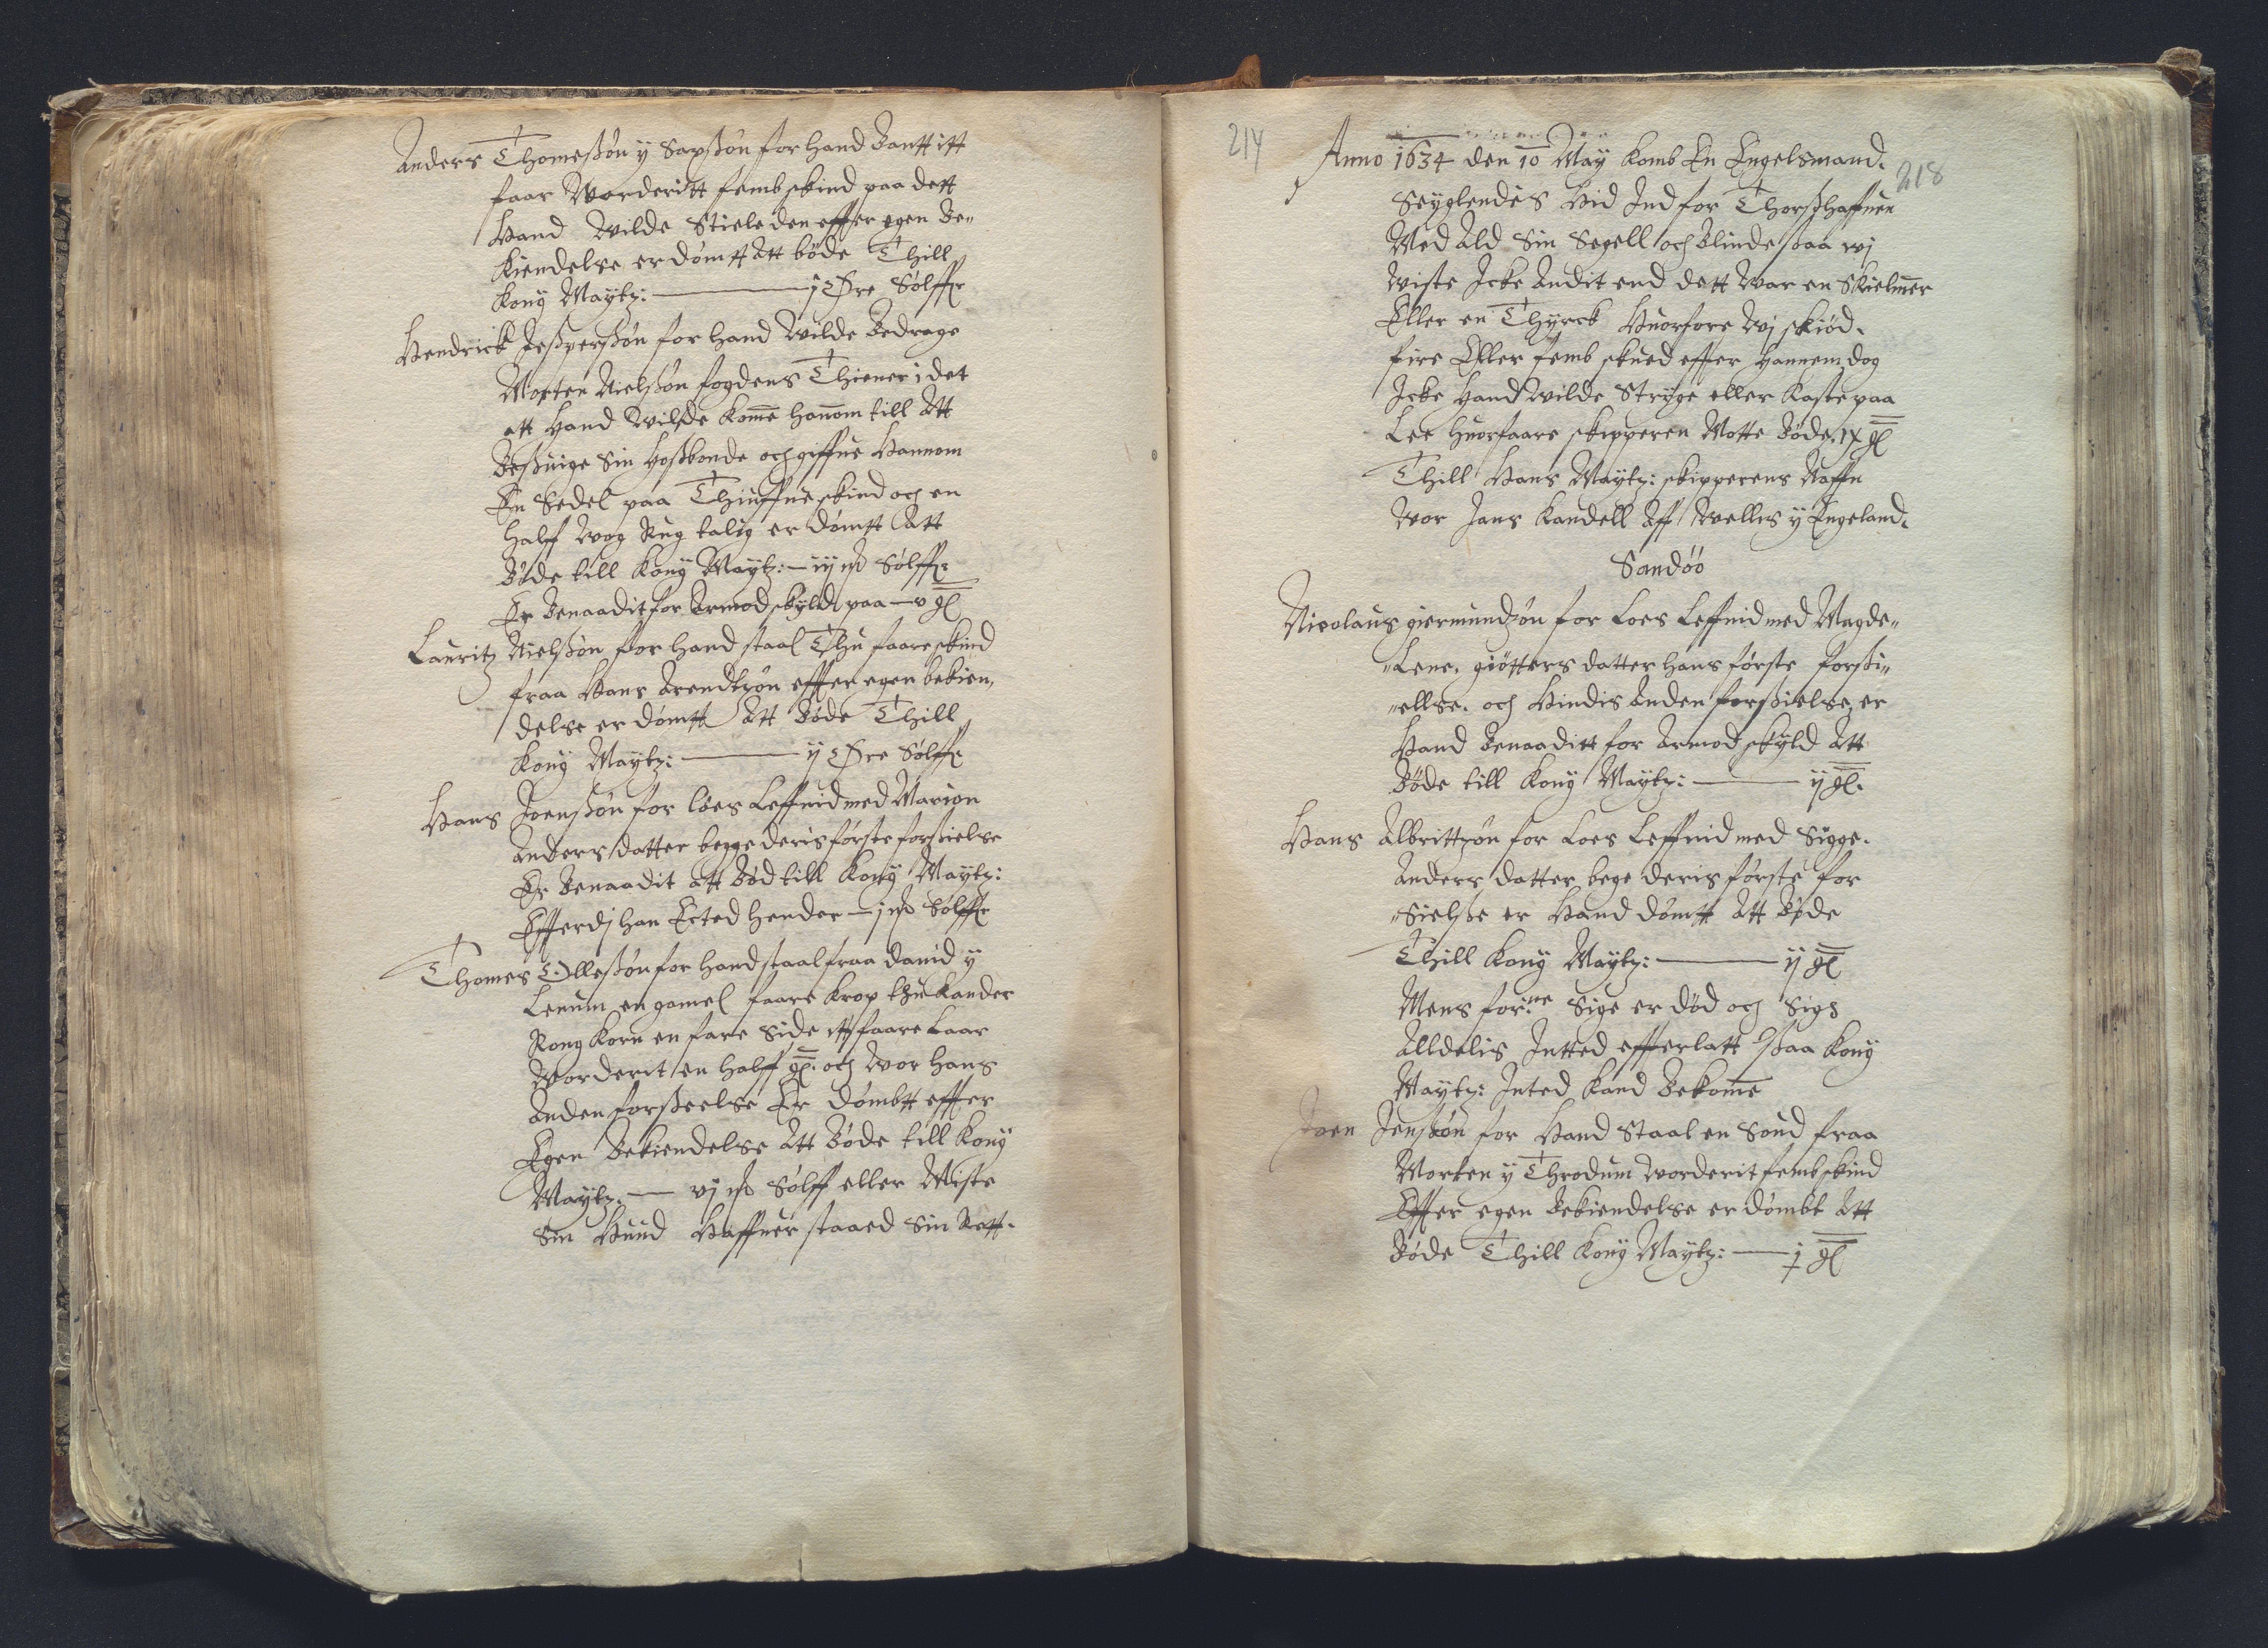 Anders Thomesßøn y Saxßøn for hand Bantt itt
faar Worderitt femb skind paa dett
Hand Wilde Stiele den effter egen Be„
kiendelse er dømtt Att bøde Thill
Kong Maytz: — j Øre Sølff
Hendrick Jesperßøn for hand Wilde Bedrage
Morten Nielßøn fogdens Thiener i det
att Hand Wilde Kome hanom till Att
Besuige Sin Hosbonde och giffue Hannom
En Sedel paa Thiuffue skind och en
Halff Wog Rug talig er dømtt Att
Bøde till Kong Maytz: — iij m Sølff
Er Benaadit for Armod skyld paa — v gl
Lauritz Nielßøn for hand staal Thu faare skind
fraa Hans Arendtzøn effter egen bekien„
delse er dømtt Att Bøde Thill
Kong Maytz: — ij Øre Sølff
Hans Joenßøn for løes Leffnid med Marion
Anders datter begge deris første forsielse
Er Benaadit att Bød till Kong Maytz:
Effterdj han Ected hender — j m Sølff
Thomes Olleßøn for hand staal fraa Dauid y
Lenum en gamel faare krop thu kander
Rong korn en fare Side itt faare Laar
Worderit en halff gl. och Wor hans
Anden forßeelse Er Dømbtt effter
Egen Bekiendelse Att Bøde till Kong
Maytz. — vj m Sølff eller Miste
Sin Huud Haffuer staaed Sin Rett.
214
218
Anno 1634 den 10 May komb En Engelsmand.
Seyglendis Hid Ind for Thorßhaffuen
Med Ald Sin Segell och Blinde ßaa wj
Wiste Icke Andit end dett War en Skielmer
Eller en Thyrck Huorfore Wj skiød.
fire Eller femb skued effter Hannem dog
Icke Hand Wilde Stryge eller Kaste paa
Lee huorfaare skipperen Motte Bøde. ix gl
Thill Hans Maytz: skipperens Naffn
Wor Jans Kandell Aff Wellis y Engeland.
Sandøø
Nicolaus giermundzøn for Loes Leffnid med Magde„
„Lene. giøtters datter hans første forsi„
„ellse. och Hindis Anden forsielse, er
Hand Benaaditt for Armod skyld Att
Bøde till Kong Maytz: — ij gl.
Hans Albrittzøn for Loes Leffnid med Sigge.
Anders datter bege deris første for
„Sielße er Hand dømtt Att Bøde
Thill Kong Maytz: — ij gl
Mens for:ne Sige er død och Sigs
Alldelis Intted effterlatt ßaa Kong
Maytz: Inted Kand Bekome
Joen Jenßøn for Hand Staal en Soud fraa
Morten y Throdum Worderit femb skind
Effter egen Bekiendelse er dømbt Att
Bøde Thill Kong Maytz: — j gl